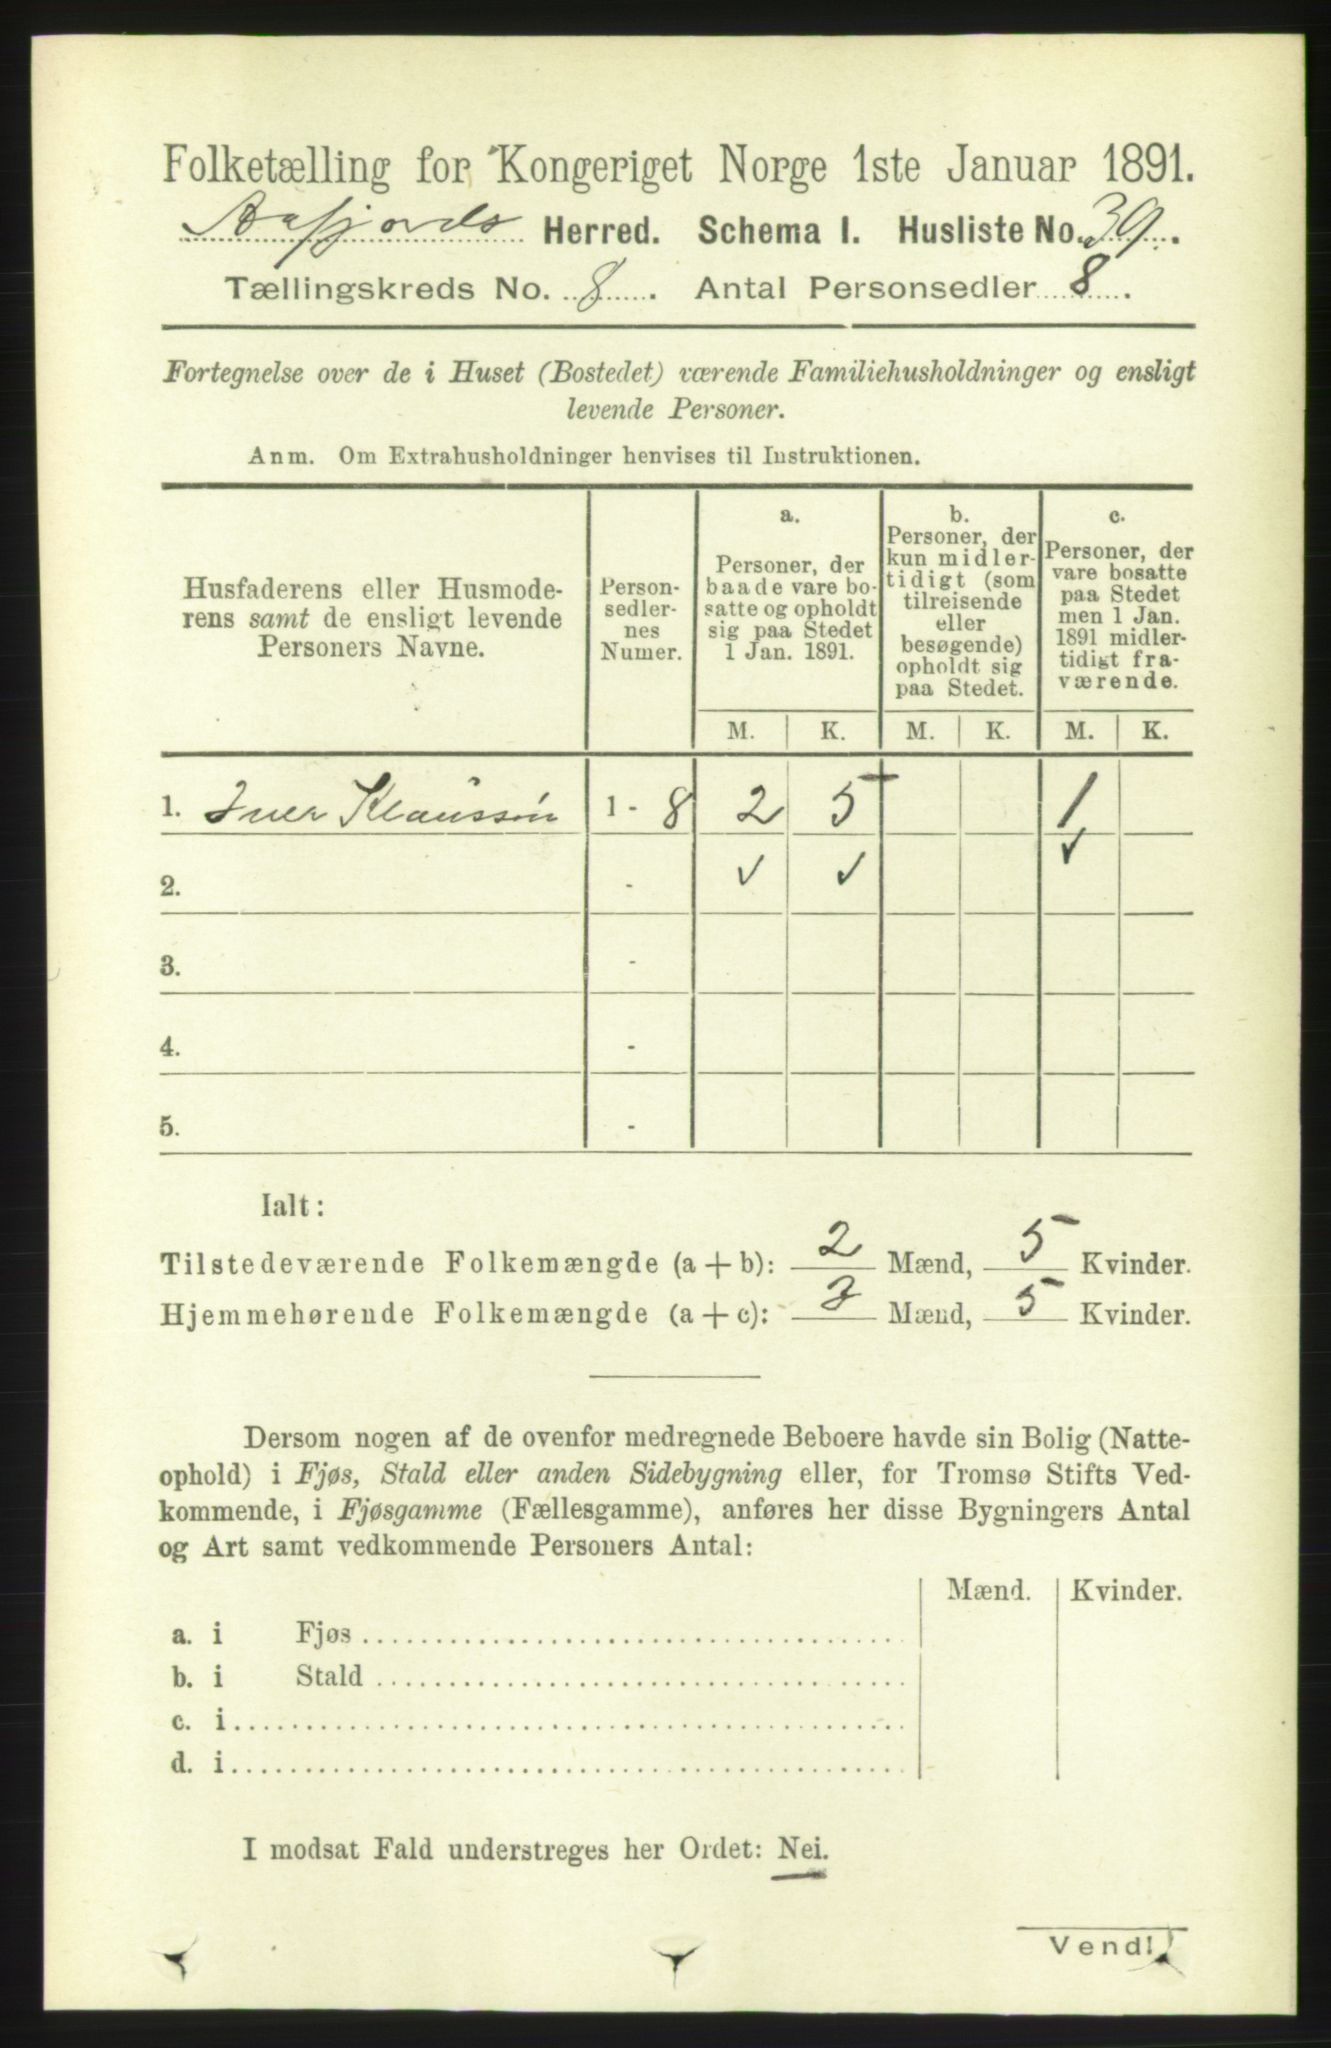 Folketælling for Kongeriget Norge 1ste Januar 1891.
Aafjords Herred. Schema I. Husliste No. 39.
Tællingskreds No. 8. Antal Personsedler 8.
Fortegnelse over de i Huset (Bostedet) værende Familiehusholdninger og ensligt
levende Personer.
Anm. Om Extrahusholdninger henvises til Instruktionen.
Husfaderens eller Husmode-
rens samt de ensligt levende
Personers Navne.
Person-
sedler-
nes
Numer.
a.
Personer, der
baade vare bo-
satte og opholdt
sig paa Stedet
1 Jan. 1891.
b.
Personer, der
kun midler-
tidigt (som
tilreisende
eller
besøgende)
opholdt sig
paa Stedet.
c.
Personer, der
vare bosatte
paa Stedet
men 1 Jan.
1891 midler-
tidigt fra-
værende.
M. K. M. K. M. K.
1. Iver Klaussøn 1 - 8 2 5 1
2. - ✓ ✓ ✓
3. -
4. -
5. -
Ialt:
Tilstedeværende Folkemængde (a + b): 2 Mænd, 5 Kvinder.
Hjemmehørende Folkemængde (a + c): 3 Mænd, 5 Kvinder.
Dersom nogen af de ovenfor medregnede Beboere havde sin Bolig (Natte-
ophold) i Fjøs, Stald eller anden Sidebygning eller, for Tromsø Stifts Ved-
kommende, i Fjøsgamme (Fællesgamme), anføres her disse Bygningers Antal
og Art samt vedkommende Personers Antal:
Mænd. Kvinder.
a. i Fjøs
b. i Stald
c. i
d. i
I modsat Fald understreges her Ordet: Nei.
Vend!